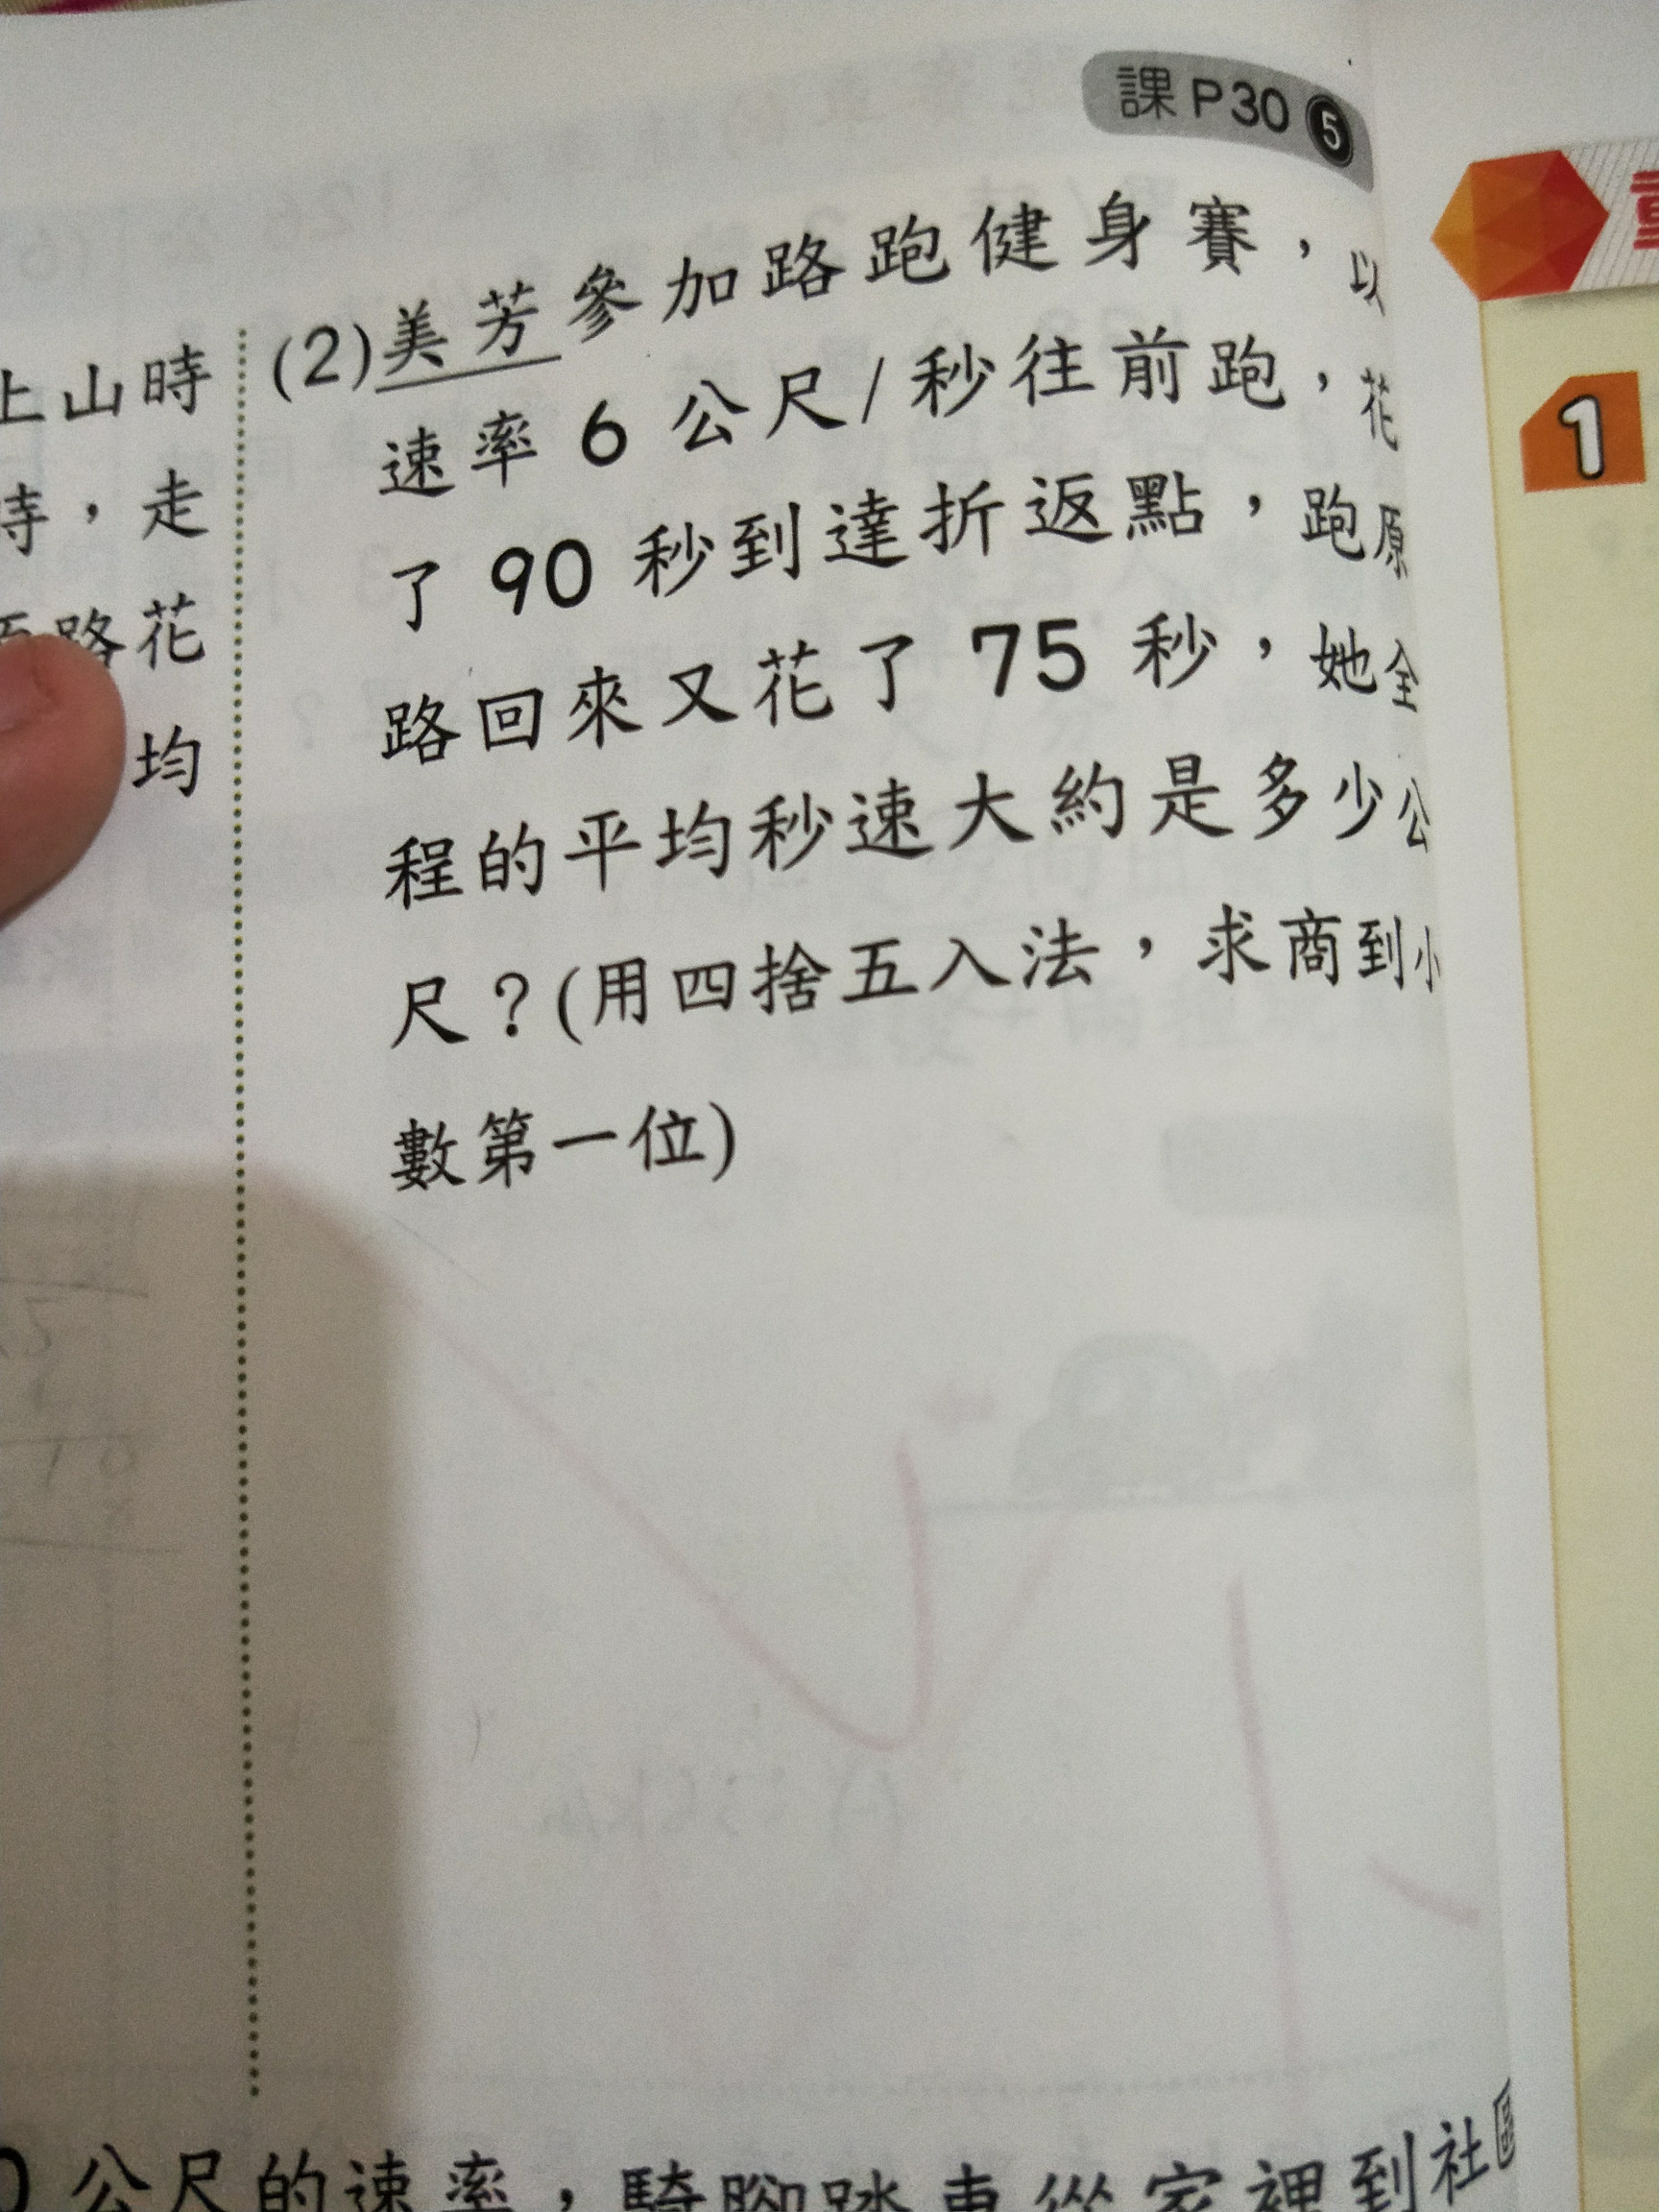 課P30 5
(2)美芳參加路跑健身賽，以
速率 6 公尺/秒往前跑，花
了 90 秒到達折返點，跑原
路回來又花了 75 秒，她全
程的平均秒速大約是多少公
尺？(用四捨五入法，求商到小
數第一位)
上山時
時，走
路花
均
1
0 公尺的速率，騎腳踏車從家裡到社區